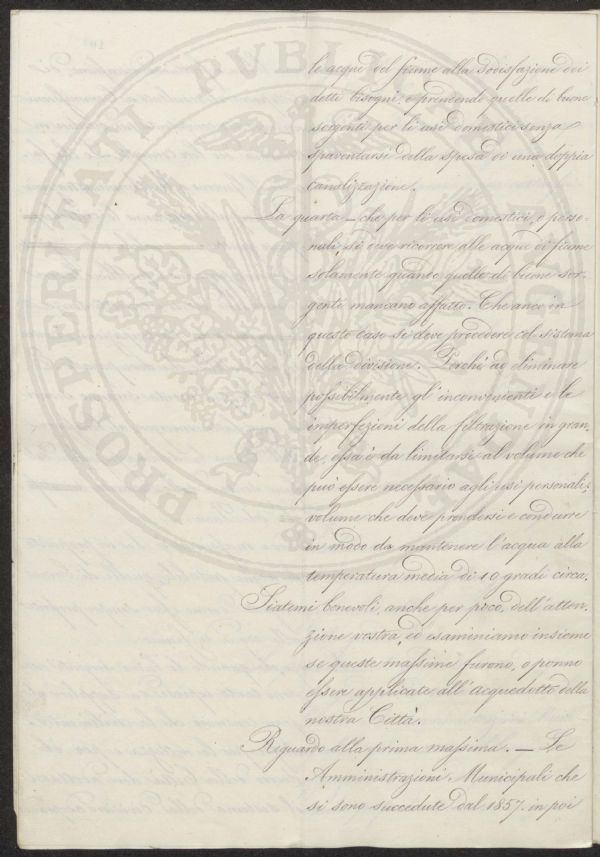 le acque del fiume alla sodisfazione dei
detti bisogni, e prendendo quelle di buone
sorgenti per li usi domestici senza
spaventarsi della spesa di una doppia
canalizzazione.
La quarta — che per li usi domestici, e perso-
nali, si deve ricorrere alle acque di fiume
solamente quando quelle di buone sor-
genti mancano affatto. Che anco in
questo caso si deve procedere col sistema
della divisione. Perché ad eliminare
possibilmente gl'inconvenienti e le
imperfezioni della feltrazione in gran-
de, essa è da limitarsi al volume che
può essere necessario agli usi personali;
volume che deve prendersi e condurre
in modo da mantenere l'acqua alla
temperatura media di 10 gradi circa.
Siatemi benevoli, anche per poco, dell'atten-
zione vostra, ed esaminiamo insieme
se queste massime furono, o ponno
essere applicate all'acquedotto della
nostra Città.
Riguardo alla prima massima. — Le
Amministrazioni Municipali che
si sono succedute dal 1857 in poi
PROSPERITATI PVBLI